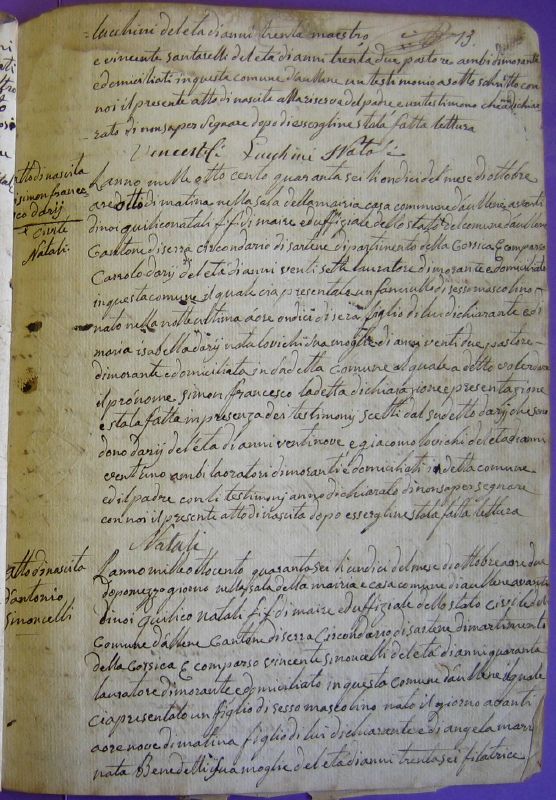 lucchini del età di anni trenta maestro
13.
e vincente santarelli del età di anni trenta due pastore ambi dimoranti
e domiciliati in questa comune d'aullene un testimonio a sotto scritto con
noi il presente atto di nascita alla riserva del padre e un testimono che a dichia
rato di non saper segnare dopo di essergline stata fatta lettura
Lucchini Natali
atto di nascita
di simon france
sco darij
Natali
Lanno mille otto cento quaranta sei li ondici del mese di ottobre
a ore otto di matina nella sala della mairia casa comune d'aullene avanti
di noi quilico natali f.f. di maire ed uffiziale dello stato del comune d'aullene
Cantone di serra circondario di sartene dipartimento della Corsica E Comparso
Carrolo darij del età di anni venti sette lauratore dimorante e domiciliato
in questa comune il quale cia presentato un fanciullo di sesso mascolino
nato nella notte ultima a ore ondici di sera figlio di lui dichiarante e di
maria isabella darij nata lovichi sua moglie di anni venti due pastore
dimorante e domiciliata in da detta Comune al quale a detto voler dare
il pronome simon francesco la detta dichiarazione e presentazione
e stata fatta in presenza dei testimonij scelti dal sudetto darij che sono
dono darij del età di anni ventinove e giacomo lovichi del età di anni
vent uno ambi laoratori dimoranti e domiciliati in detta comune
ed il padre con li testimonij anno dichiarato di non saper segnare
con noi il presente atto di nascita dopo essergline stata fatta lettura
Natali
atto di nascita
d'antonio
Simoncelli
Lanno mille ottocento quaranta sei li undici del mese di ottobre a ore due
dopo mezzo giorno nella sala della mairia e casa comune di aullene avanti
di noi quilico natali f.f. di maire ed uffiziale dello stato civile del
Comune d'aullene Cantone di serra Circondario di sartene dipartimento
della Corsica E comparso vincente simoncelli del età di anni quaranta
lauratore dimorante e domiciliato in questa Comune d'aullene il quale
cia presentato un figlio di sesso mascolino nato il giorno avanti
a ore nove di matina figlio di lui dichiarante e di angela maria
nata Benedetti sua moglie del età di anni trenta sei filatrice